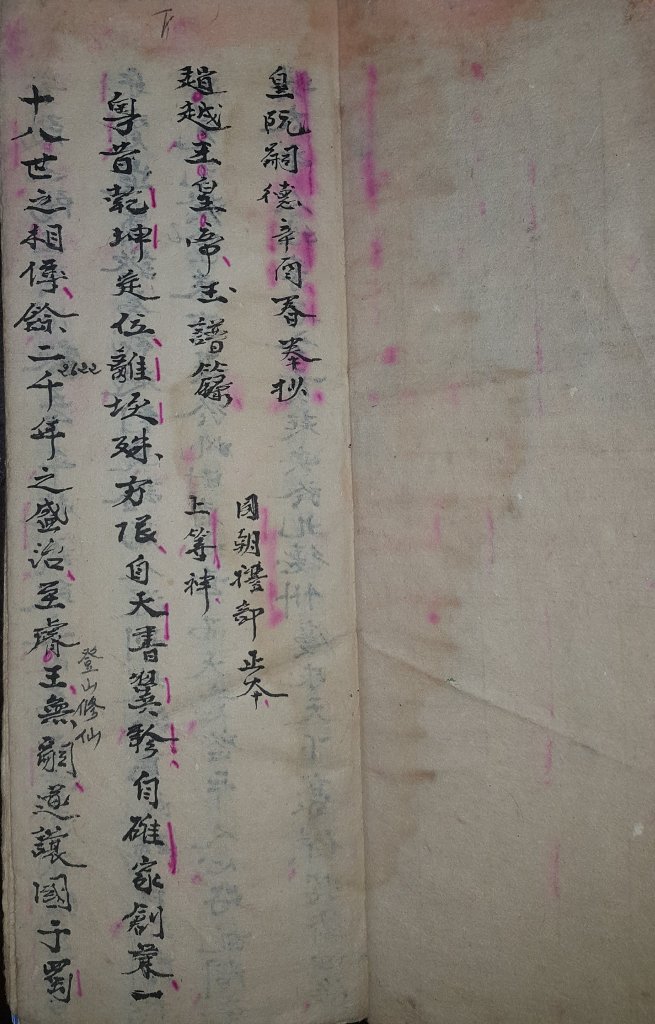 皇阮嗣德辛酉春奉抄
國朝禮部正本
趙越王皇帝玉譜錄
上等神
粵昔乾坤定位離坎殊方㞋自天書翼軫自雄家創業一
十八世之相傳餘二千年之盛治至睿王無嗣遂讓國于蜀
2622
登山修仙